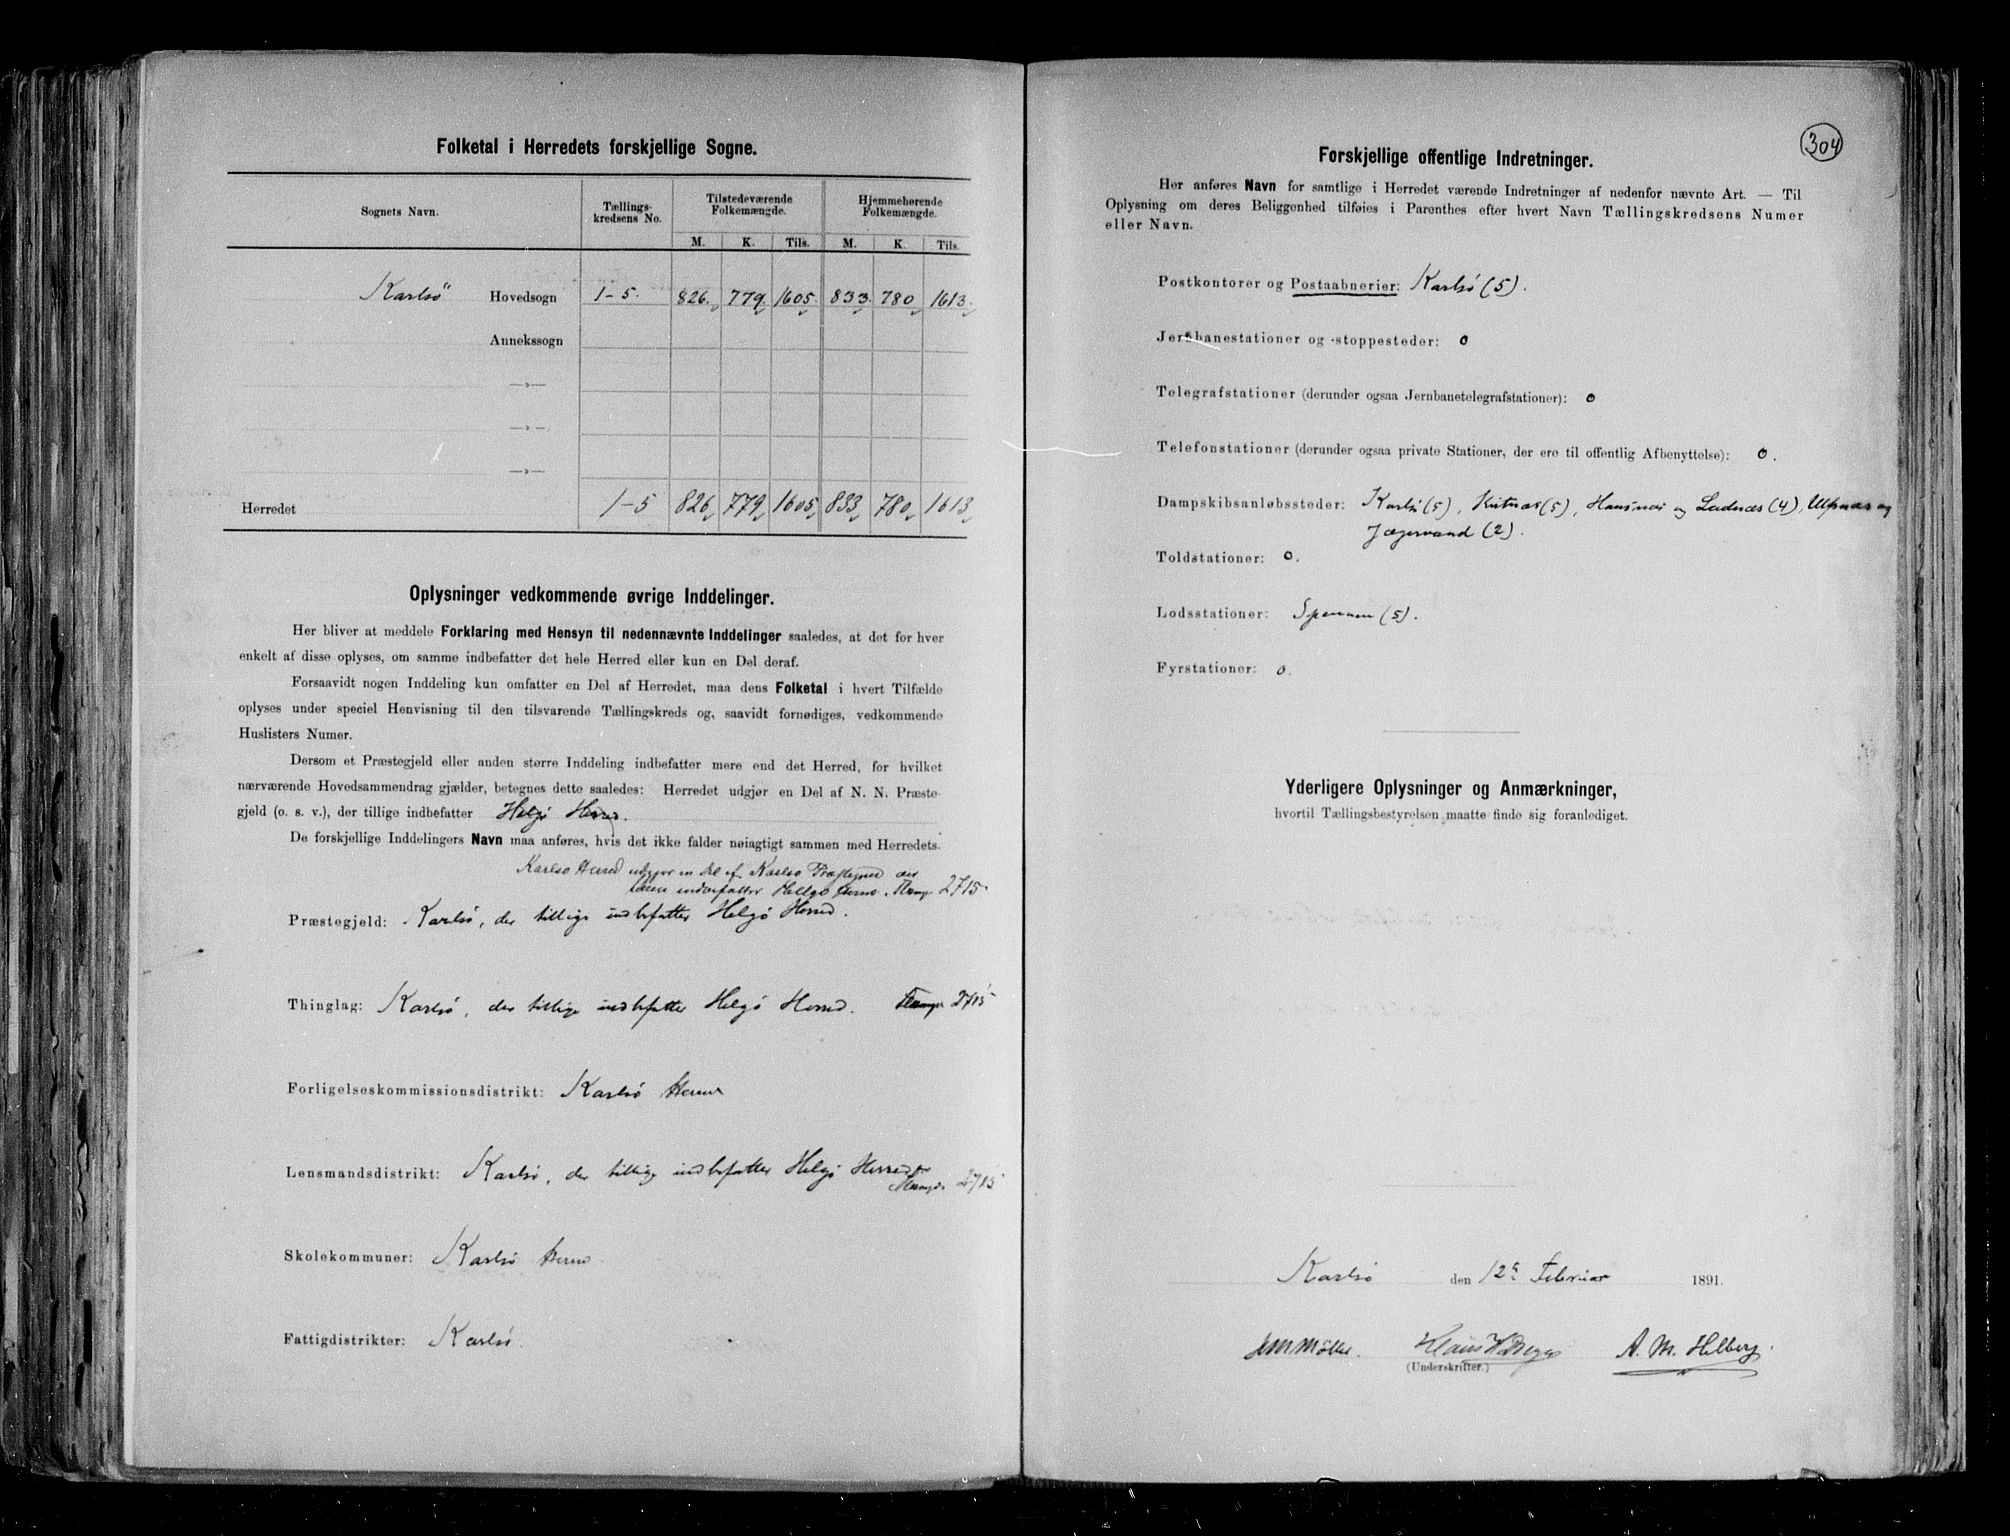 Folketal i Herredets forskjellige Sogne.
Sognets Navn. Tællings-kredsens No. Tilstedeværende Folkemængde. Hjemmehørende Folkemængde.
M. K. Tils. M. K. Tils.
Karlsö Hovedsogn 1-5. 826. 779. 1605. 833. 780 1613.
Annekssogn
—»—
—»—
—»—
Herredet 1-5 826 779 1605 833 780 1613
Oplysninger vedkommende øvrige Inddelinger.
Her bliver at meddele Forklaring med Hensyn til nedennævnte Inddelinger saaledes, at det for hver
enkelt af disse oplyses, om samme indbefatter det hele Herred eller kun en Del deraf.
Forsaavidt nogen Inddeling kun omfatter en Del af Herredet, maa dens Folketal i hvert Tilfælde
oplyses under speciel Henvisning til den tilsvarende Tællingskreds og, saavidt fornødiges, vedkommende
Huslisters Numer.
Dersom et Præstegjeld eller anden større Inddeling indbefatter mere end det Herred, for hvilket
nærværende Hovedsammendrag gjælder, betegnes dette saaledes: Herredet udgjør en Del af N. N. Præste-
gjeld (o. s. v.), der tillige indbefatter Helgö Herred.
De forskjellige Inddelingers Navn maa anføres, hvis det ikke falder nøiagtigt sammen med Herredets.
Karlsö Herred udgjör en del af Karlsö
indbefatter Helgö 2715
Præstegjeld: Karlsö, der tillige indbefatter Helgö Herred.
Thinglag: Karlsö, der tillige indbefatter Helgö Herred. 2715
Forligelseskommissionsdistrikt: Karlsö Herred
Lensmandsdistrikt: Karlsö, der tillige indbefatter Helgö Herred
2715
Skolekommuner: Karlsö Herred
Fattigdistrikter: Karlsö.
304
Forskjellige offentlige Indretninger.
Her anføres Navn for samtlige i Herredet værende Indretninger af nedenfor nævnte Art. — Til
Oplysning om deres Beliggenhed tilføies i Parenthes efter hvert Navn Tællingskredsens Numer
eller Navn.
Postkontorer og Postaabnerier: Karlsö (5).
Jernbanestationer og -stoppesteder: 0
Telegrafstationer (derunder ogsaa Jernbanetelegrafstationer): 0
Telefonstationer (derunder ogsaa private Stationer, der ere til offentlig Afbenyttelse): 0.
Dampskibsanløbssteder: Karlsö (5), (5), Hansnæs og Ladnæs (4), og
Jægervand (2).
Toldstationer: 0.
Lodsstationer: (5).
Fyrstationer: 0.
Yderligere Oplysninger og Anmærkninger,
hvortil Tællingsbestyrelsen maatte finde sig foranlediget.
Karlsö den 12te Februar 1891.
A. M. Helberg.
(Underskrifter.)